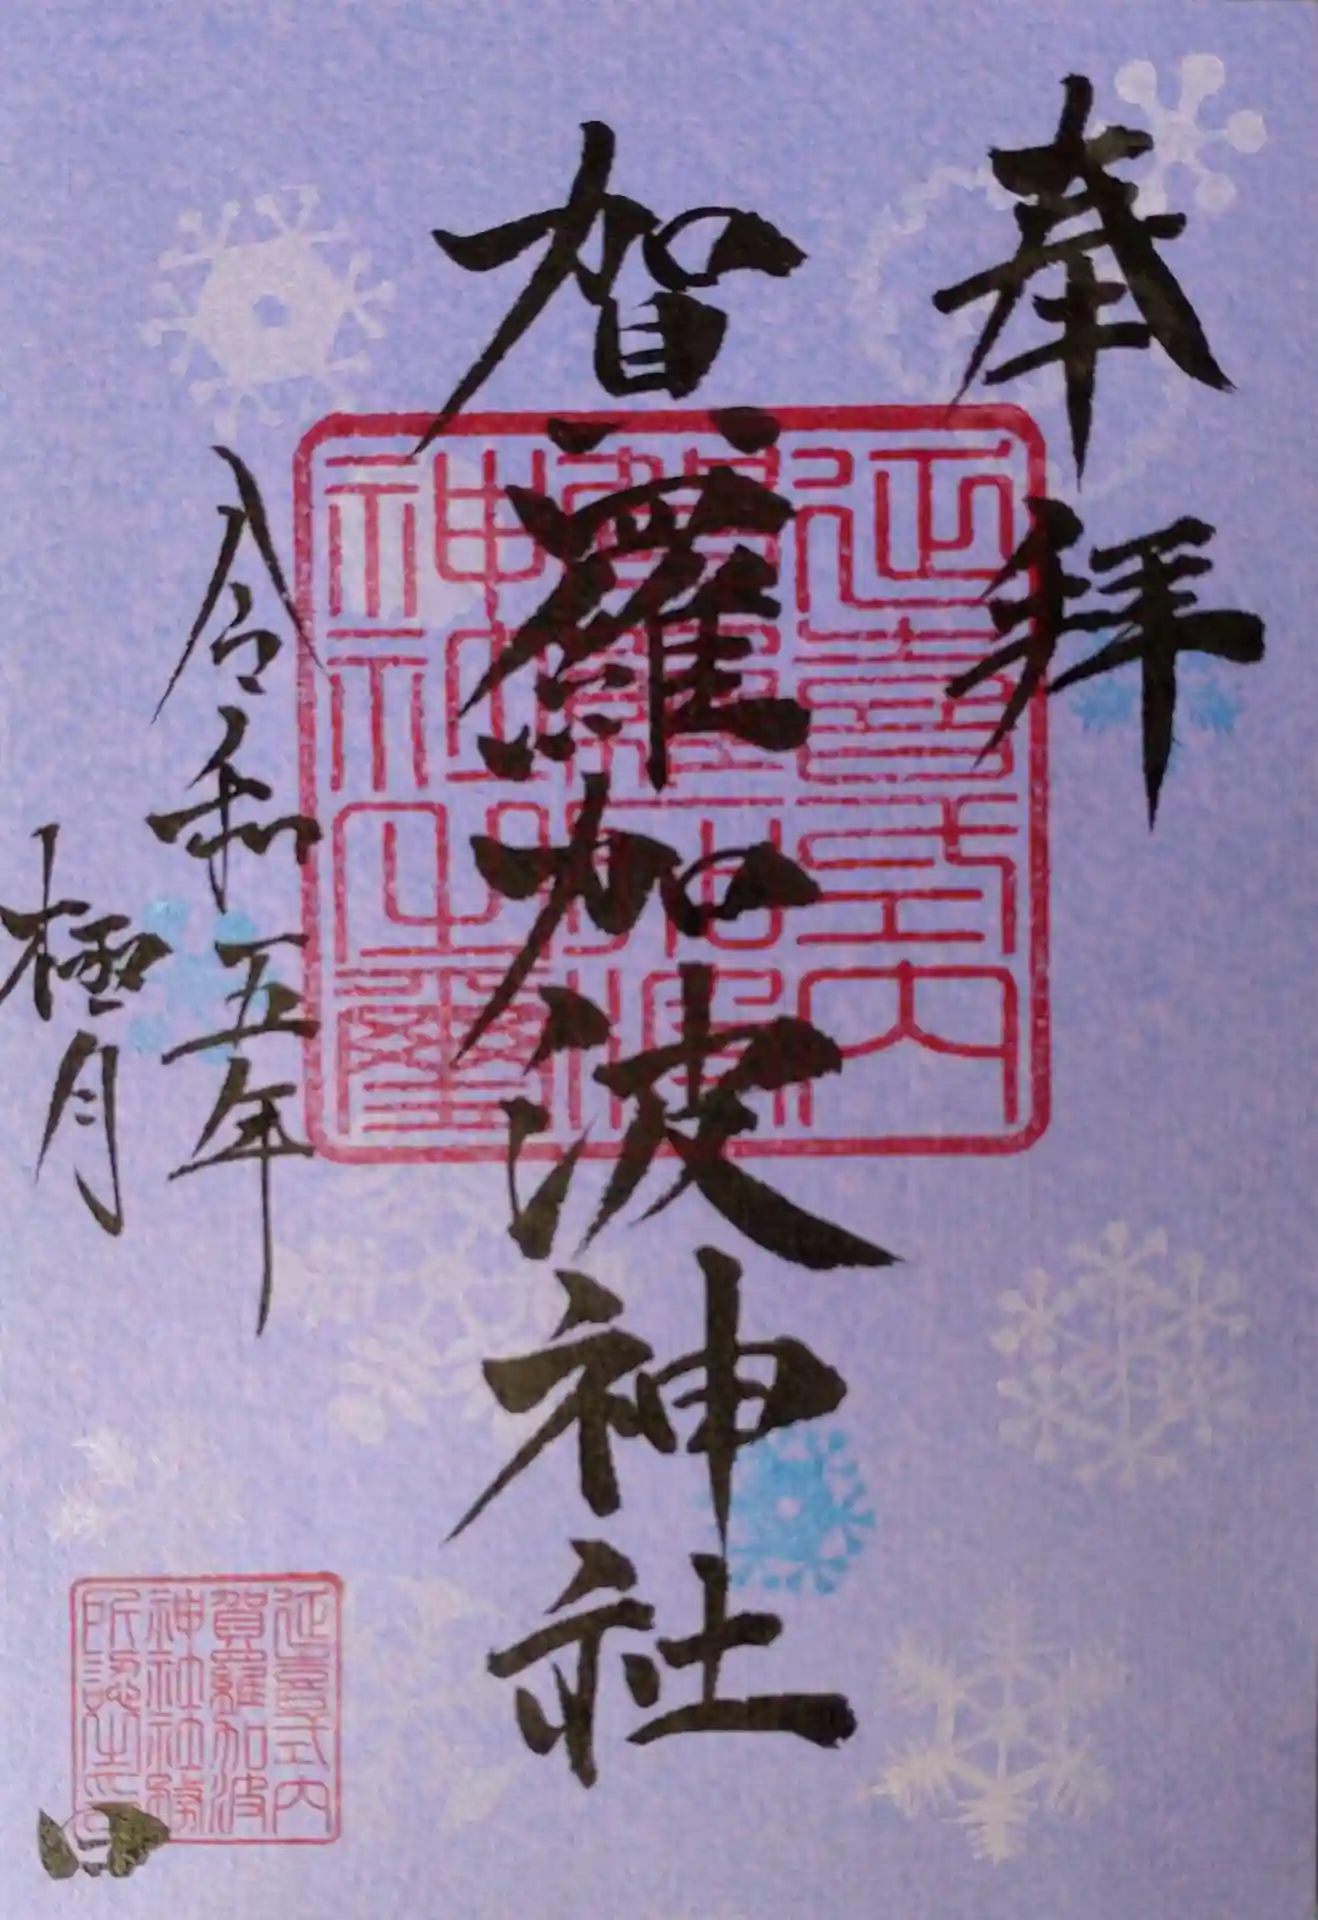 奉拝
賀羅加波神社
令和五年
極月
日
延喜式内
賀羅加波
神社之璽
延喜式内
賀羅加波
神社社務
所認之印